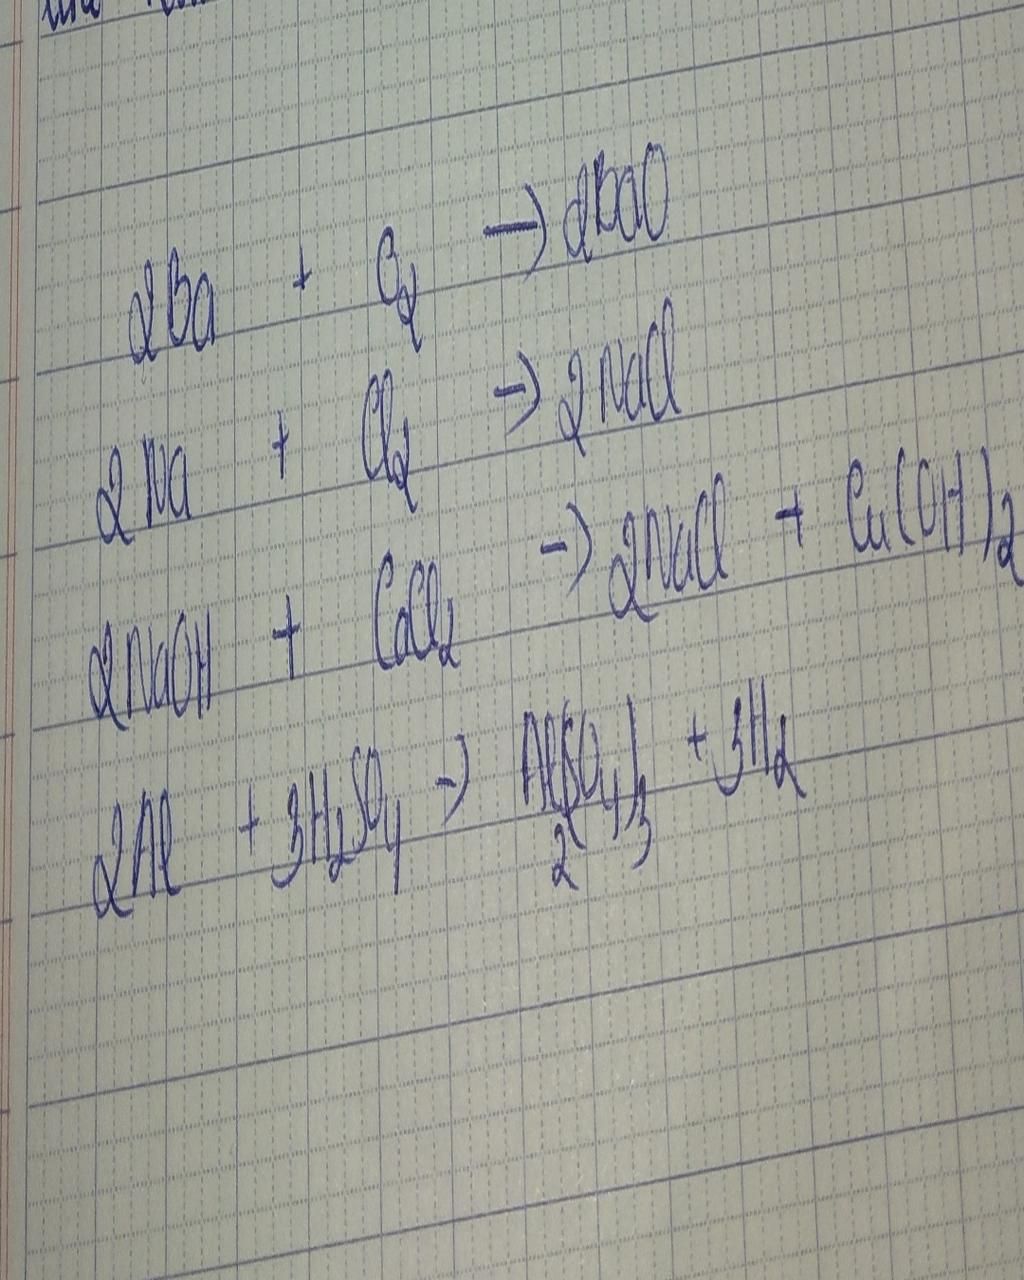 2Ba + O₂ → 2BaO
2Na + Cl₂ → 2NaCl
2NaOH + CaCl₂ → 2NaCl + Cu(OH)₂
2Al + 3H₂SO₄ → Al₂(SO₄)₃ + 3H₂